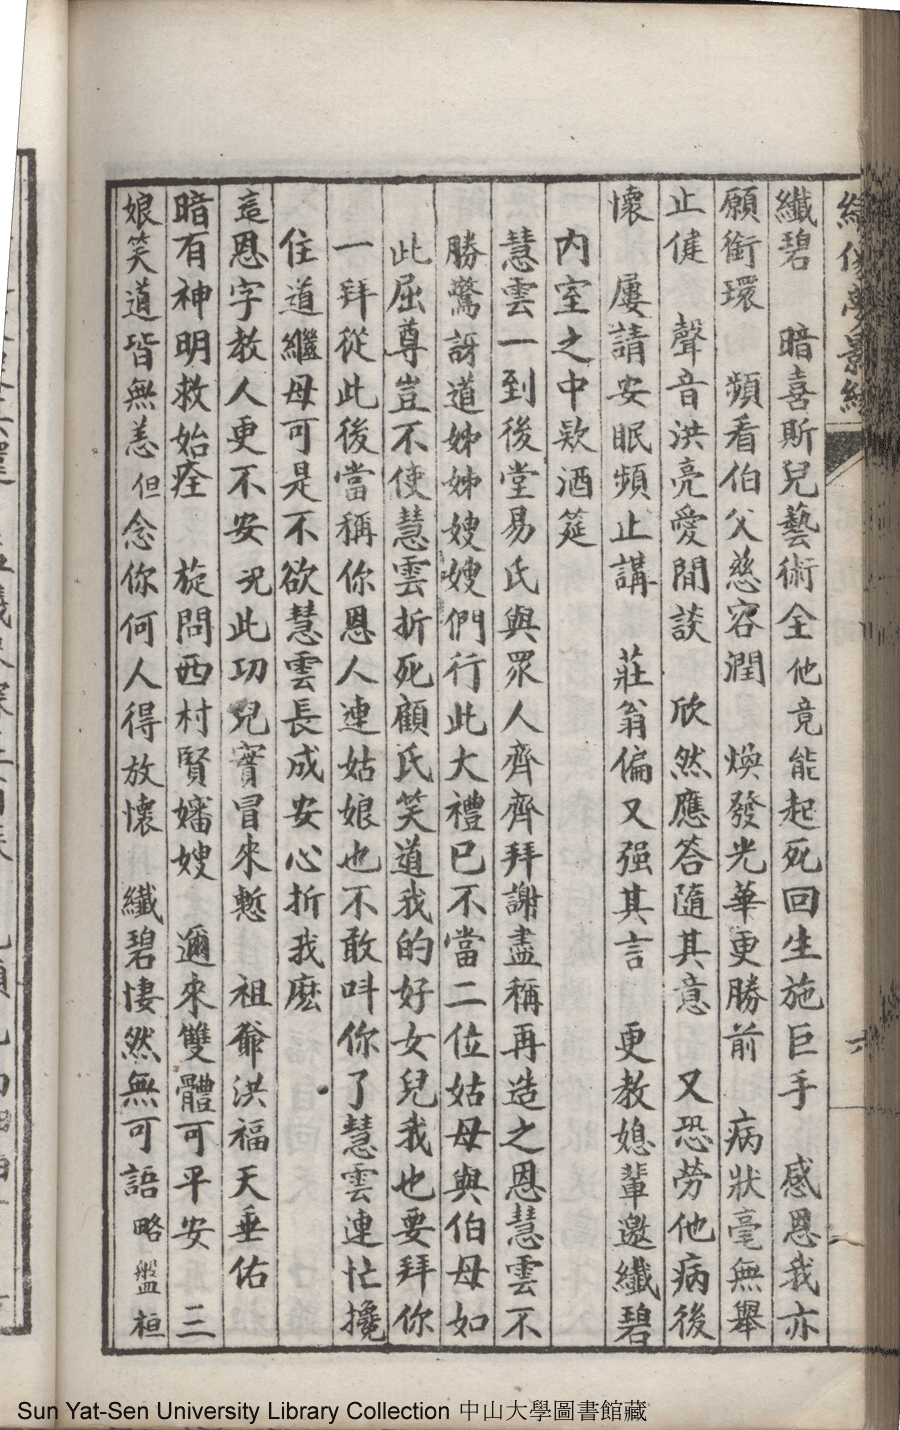 纖碧　暗喜斯兒藝術全他竟能起死回生施巨手　感恩我亦
願銜環　頻看伯父慈容潤　煥發光華更勝前　病狀毫無舉
止健　聲音洪亮愛閒談　欣然應答隨其意　又恐勞他病後
懷　屢請安眠頻止講　莊翁偏又强其言　更教媳輩邀纖碧
內室之中欵酒筵
慧雲一到後堂易氏與眾人齊齊拜謝盡稱再造之恩慧雲不
勝驚訝道姊姊嫂嫂們行此大禮已不當二位姑母與伯母如
此屈尊豈不使慧雲折死顧氏笑道我的好女兒我也要拜你
一拜從此後當稱你恩人連姑娘也不敢呌你了慧雲連忙攙
住道繼母可是不欲慧雲長成安心折我麽
這恩字教人更不安况此功兒實冒來慙　祖爺洪福天垂佑
暗有神明救始痊　旋問西村賢嬸嫂　邇來雙體可平安　三
娘笑道皆無恙但念你何人得放懷　纖碧悽然無可語略盤桓
六
Sun Yat-Sen University Library Collection 中山大學圖書館藏